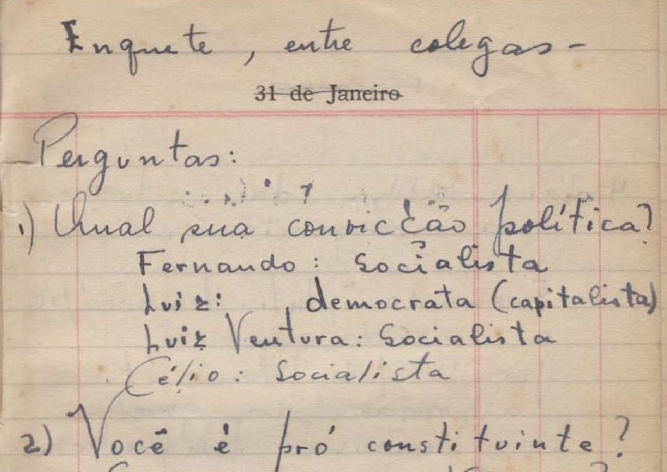 Enquete, entre colegas -
31 de Janeiro
Perguntas:
1) Qual sua convicção política?
Fernando: Socialista
Luiz: democrata (capitalista)
Luiz Ventura: Socialista
Célio: Socialista
2) Você é pró constituinte?